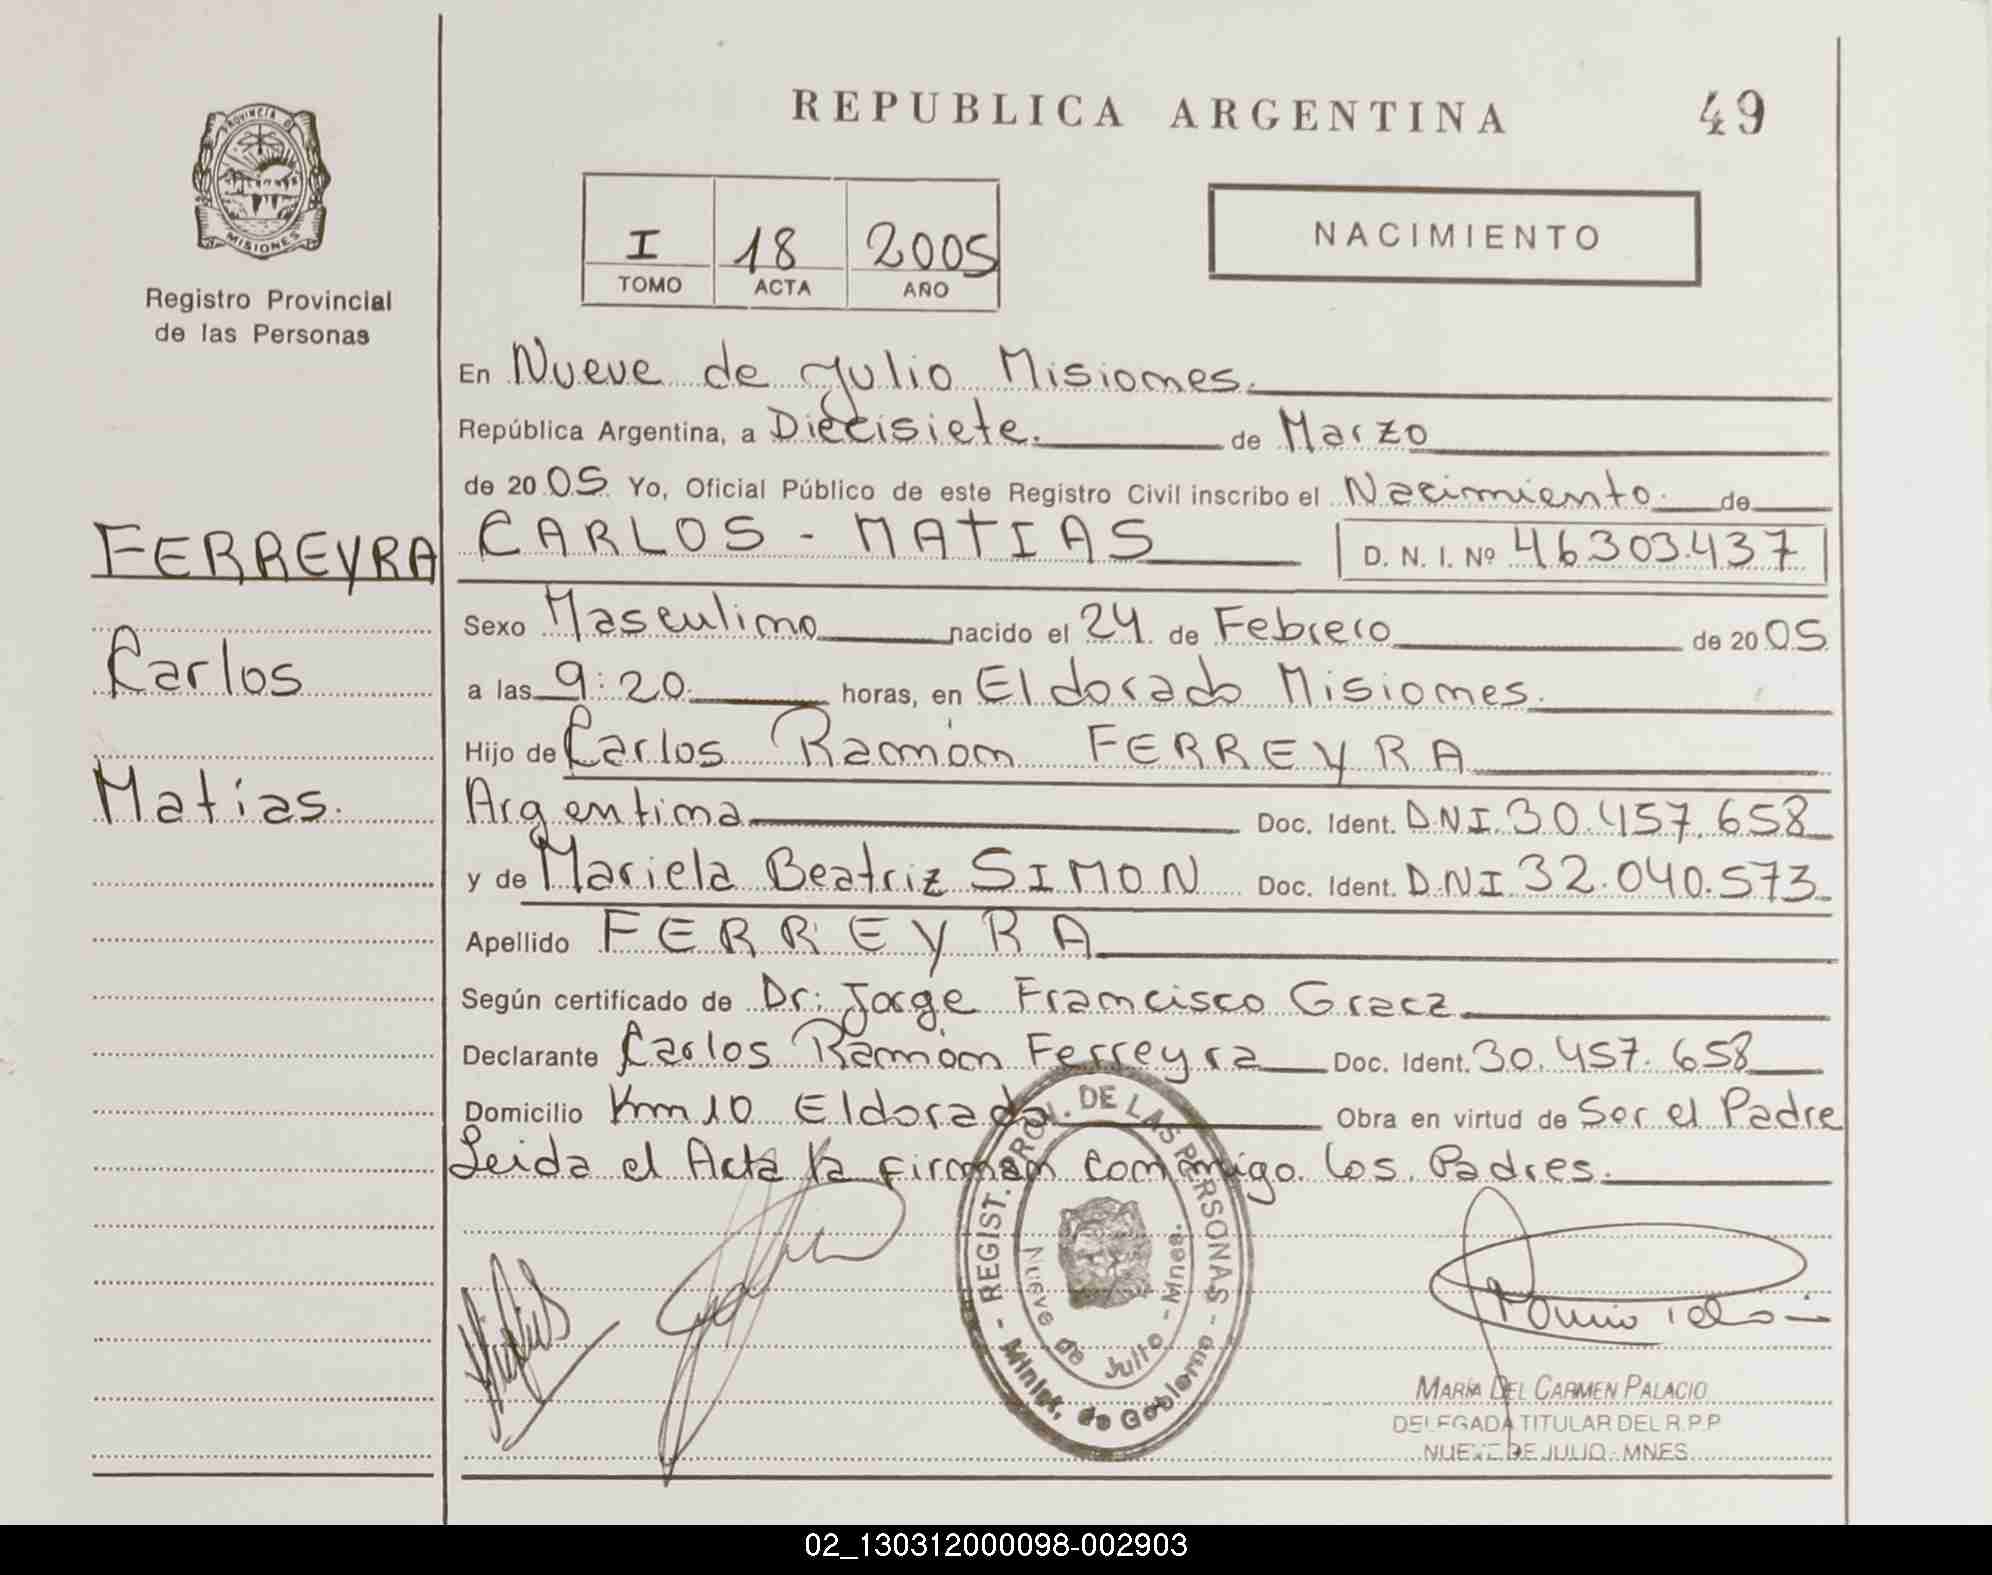 REPUBLICA ARGENTINA
49
PROVINCIA DE
MISIONES
Registro Provincial
de las Personas
I 18 2005
TOMO ACTA AÑO
NACIMIENTO
En Nueve de Julio Misiones.
República Argentina, a Diecisiete. de Marzo
de 2005 Yo, Oficial Público de este Registro Civil inscribo el Nacimiento. de
FERREYRA
Carlos
Matías.
CARLOS - MATIAS D. N. I. Nº 46.303.437
Sexo Masculino nacido el 24 de Febrero de 2005
a las 9:20 horas, en Eldorado Misiones.
Hijo de Carlos Ramón FERREYRA
Argentina Doc. Ident. DNI.30.457.658
y de Mariela Beatriz SIMON Doc. Ident. DNI 32.040.573
Apellido FERREYRA
Según certificado de Dr: Jorge Francisco Gracz
Declarante Carlos Ramón Ferreyra Doc. Ident. 30.457.658
Domicilio Km 10 Eldorado Obra en virtud de Ser el Padre
Leida el Acta la firman conmigo los Padres.
REGIST. PROV. DE LAS PERSONAS
- Minist. de Gobierno -
Nueve de Julio - Mnes.
MARÍA DEL CARMEN PALACIO
DELEGADA TITULAR DEL R.P.P
NUEVE DE JULIO - MNES
02_130312000098-002903